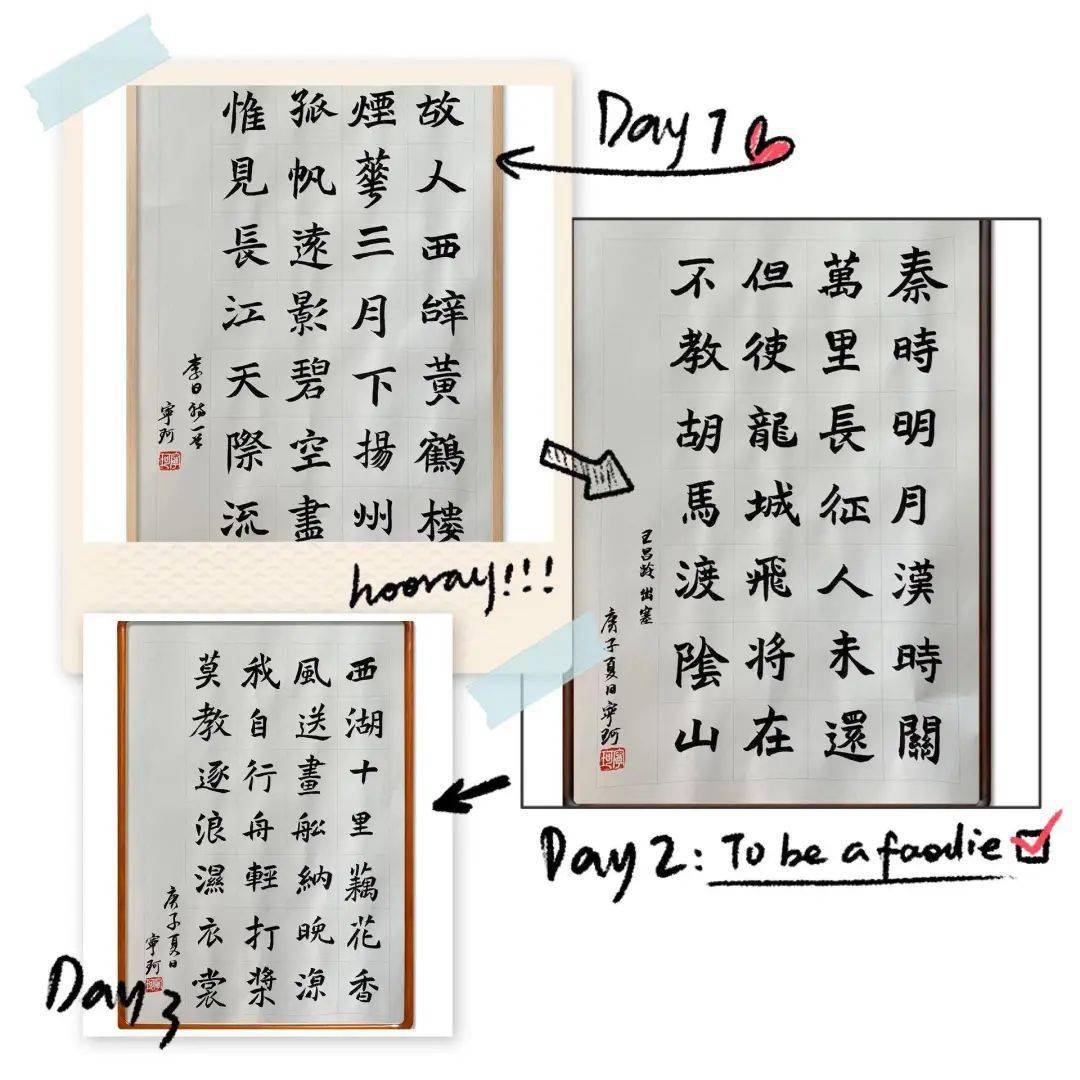 Day 1
故人西辭黃鶴樓
煙花三月下揚州
孤帆遠影碧空盡
惟見長江天際流
李白詩一首
寧珂
hooray!!!
秦時明月漢時關
萬里長征人未還
但使龍城飛將在
不教胡馬渡陰山
王昌齡 出塞
庚子夏日寧珂
Day 2: To be a foodie
西湖十里藕花香
風送畫船納晚涼
我自行舟輕打槳
莫教逐浪濕衣裳
庚子夏日
寧珂
Day 3